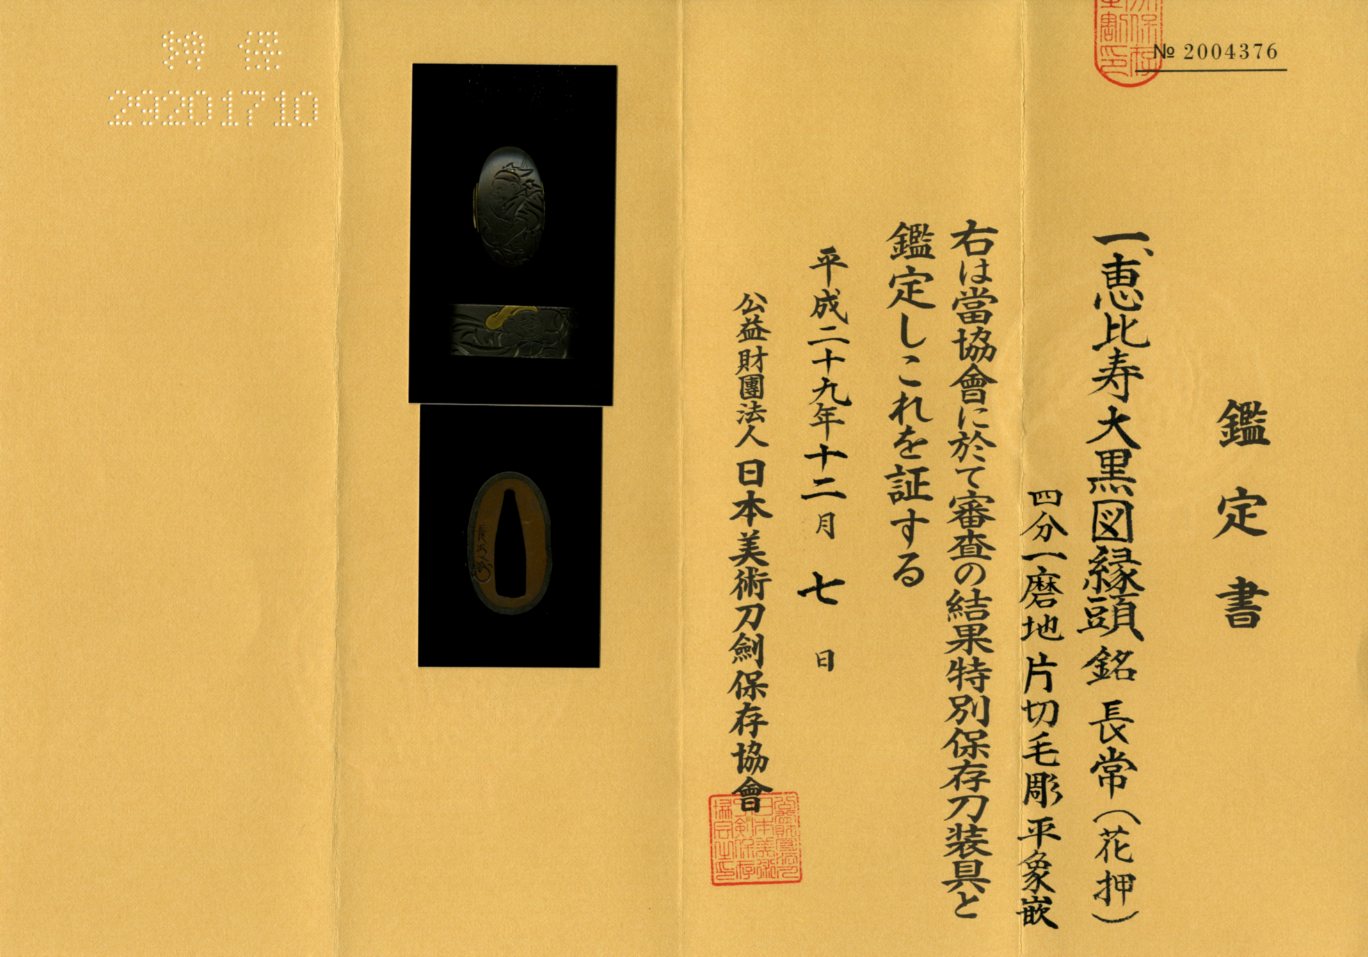 № 2004376
鑑定書
一、恵比寿大黒図縁頭 銘 長常(花押)
四分一磨地 片切毛彫 平象嵌
右は當協會に於て審査の結果特別保存刀装具と
鑑定しこれを証する
平成二十九年十二月 七 日
公益財團法人 日本美術刀劍保存協會
29201710